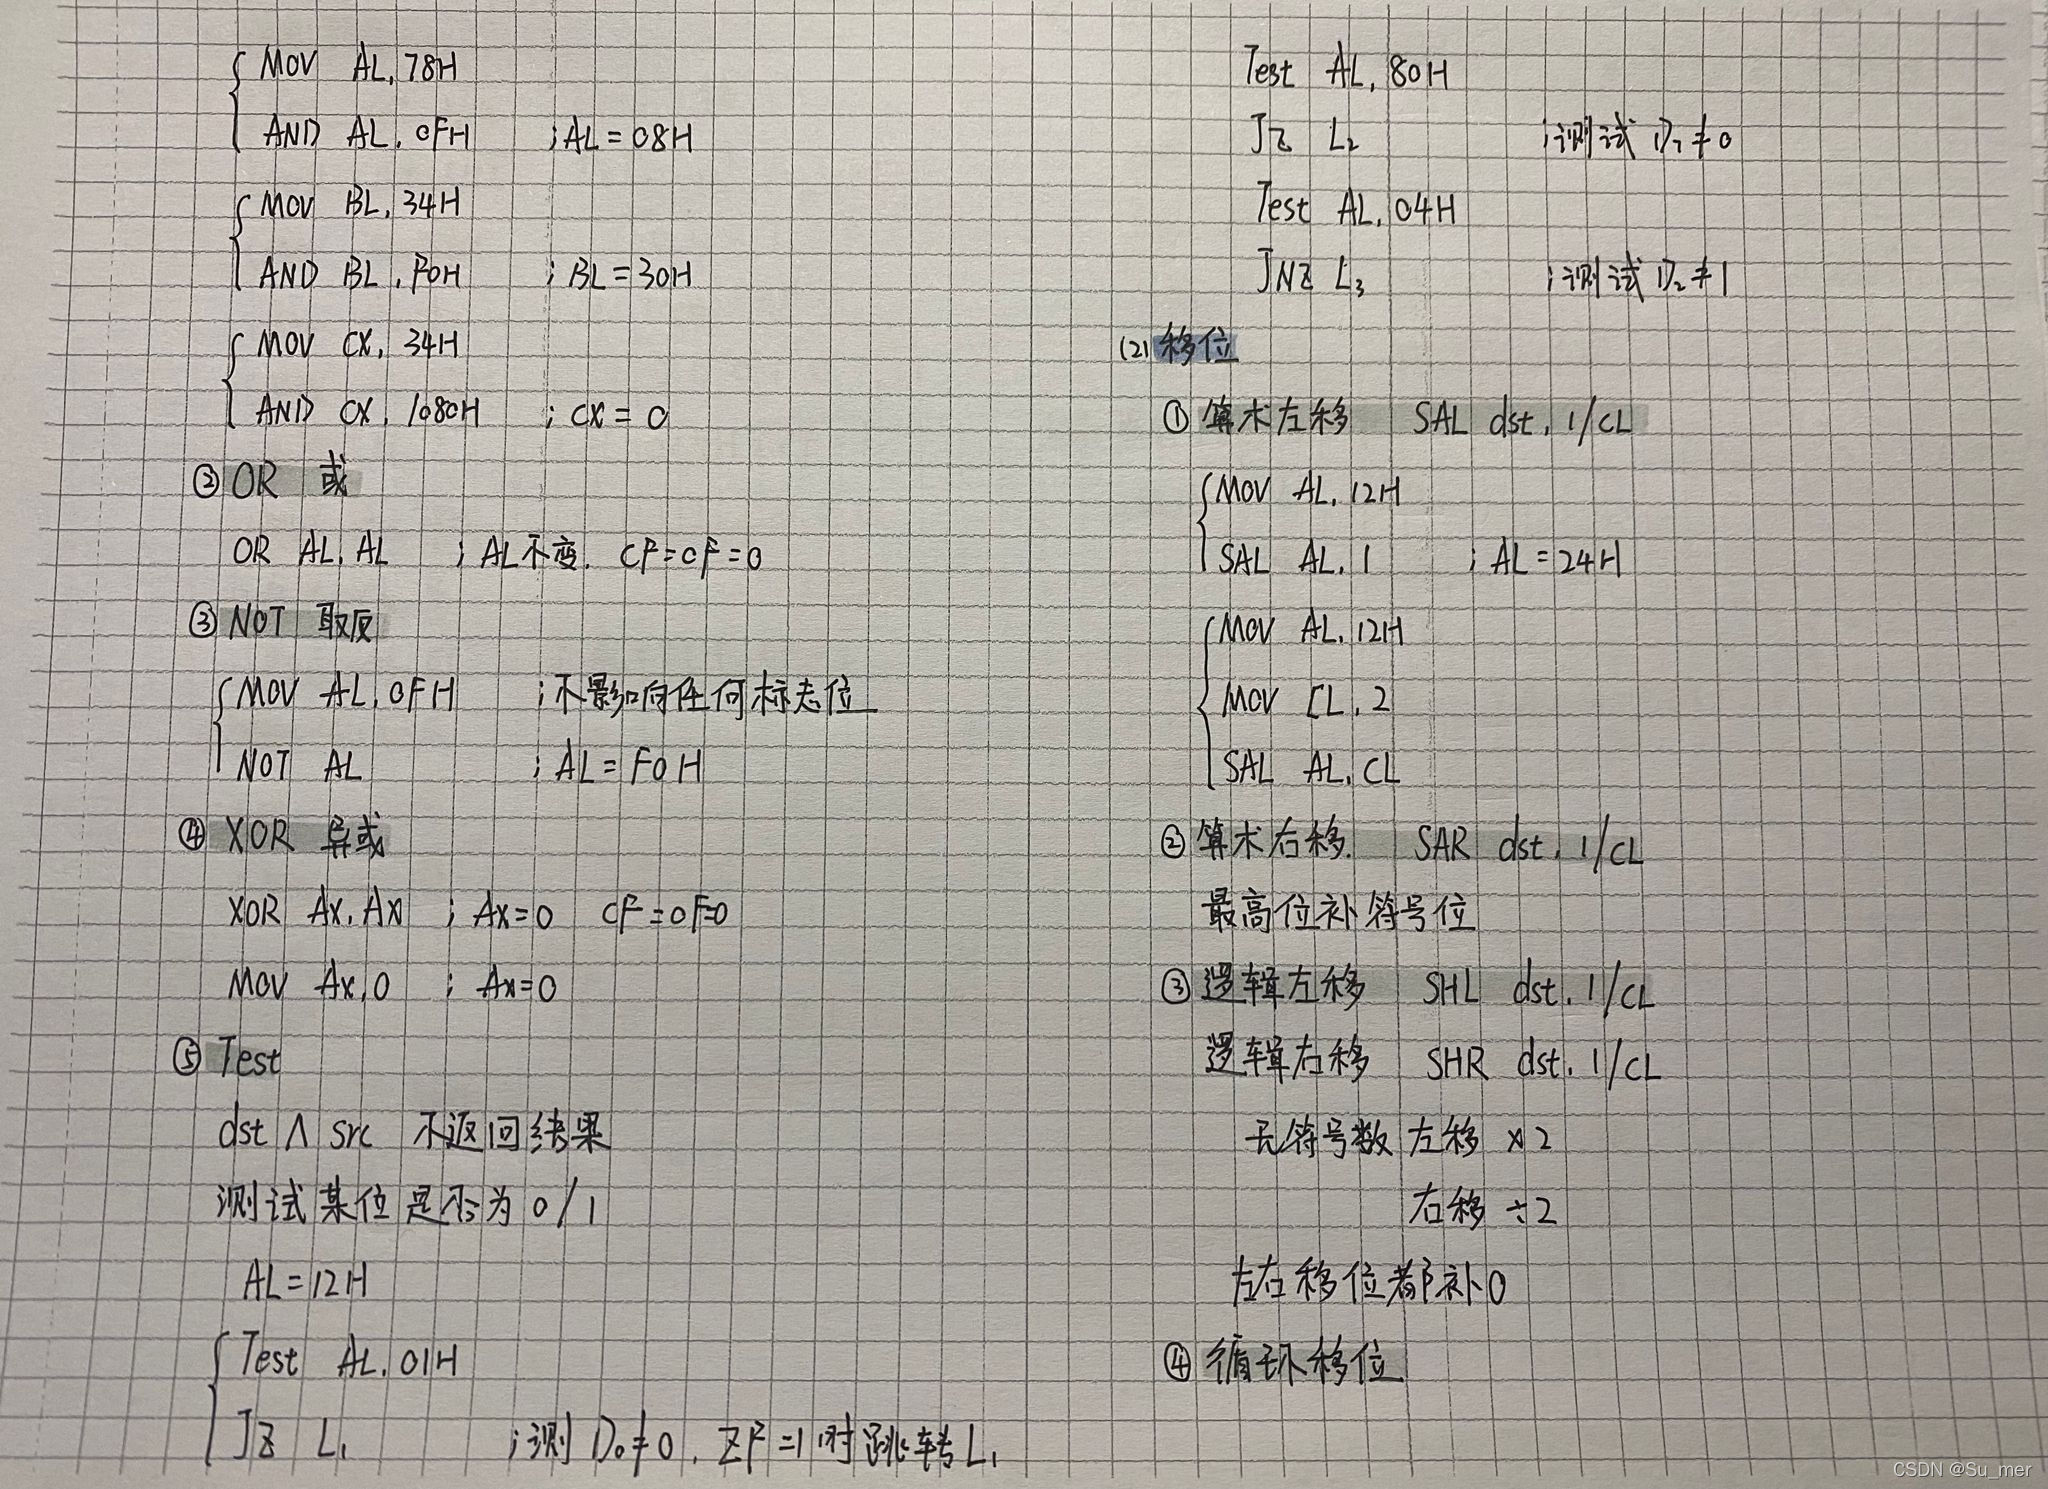 MOV AL, 78H
AND AL, 0FH ; AL=08H
MOV BL, 34H
AND BL, F0H ; BL=30H
MOV CX, 34H
AND CX, 1080H ; CX=0
② OR 或
OR AL, AL ; AL不变. CF=OF=0
③ NOT 取反
MOV AL, 0FH ; 不影响任何标志位
NOT AL ; AL=F0H
④ XOR 异或
XOR AX, AX ; AX=0 CF=OF=0
MOV AX, 0 ; AX=0
⑤ Test
dst ∧ src 不返回结果
测试某位是否为0/1
AL=12H
Test AL, 01H
JZ L₁ ; 测D₀≠0, ZF=1时跳转L₁
Test AL, 80H
JZ L₂ ; 测试D₇≠0
Test AL, 04H
JNZ L₃ ; 测试D₂≠1
(2) 移位
① 算术左移 SAL dst, 1/CL
MOV AL, 12H
SAL AL, 1 ; AL=24H
MOV AL, 12H
MOV CL, 2
SAL AL, CL
② 算术右移. SAR dst, 1/CL
最高位补符号位
③ 逻辑左移 SHL dst, 1/CL
逻辑右移 SHR dst, 1/CL
无符号数 左移 ×2
右移 ÷2
左右移位都补0
④ 循环移位
CSDN @Su_mer